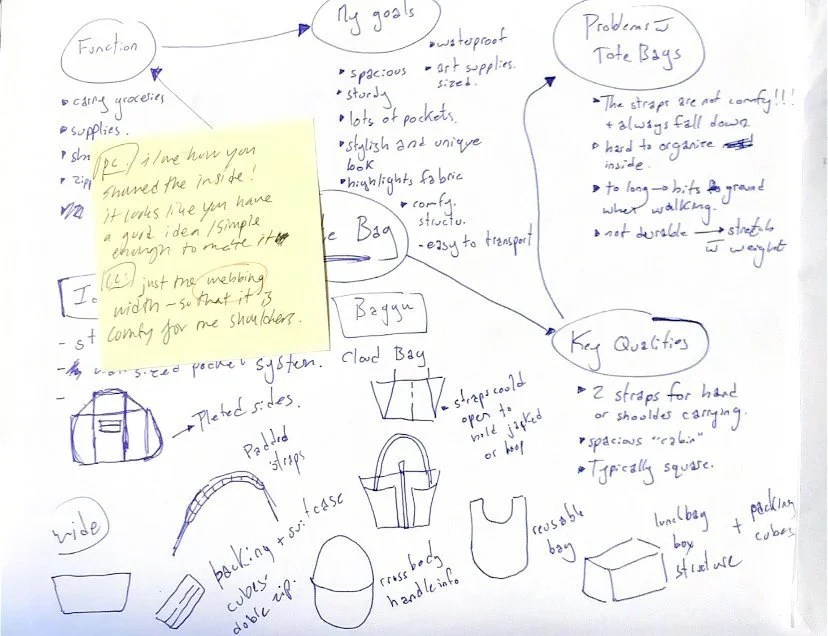 Function
• carry groceries
• supplies.
My goals
• spacious
• sturdy
• lots of pockets.
• stylish and unique
look
• highlights fabric
• waterproof
• art supplies.
sized.
• comfy.
structu.
- easy to transport
Problems w̄
Tote Bags
• The straps are not comfy!!!
+ always fall down.
• hard to organize
inside.
• to long → hits ground
when walking.
• not durable → stretch
w̄ weight
pc: i love how you
shared the inside!
it looks like you have
a gold idea/simple
enough to make it
CC: just the webbing
width - so that it is
comfy for the shoulders.
Bag
- st
sized pocket system.
Baggu
Cloud Bag
Key Qualities
• 2 straps for hand
or shoulder carrying.
• spacious "cabin"
• Typically square.
→ Pleted sides.
Padded
straps
• straps could
open to
hold jacked
or loop
wide
packing + suitcase
cubes.
doble zip.
crossbody
handle info
reusable
bag
lunchbag
box
structure
+ packing
cubes